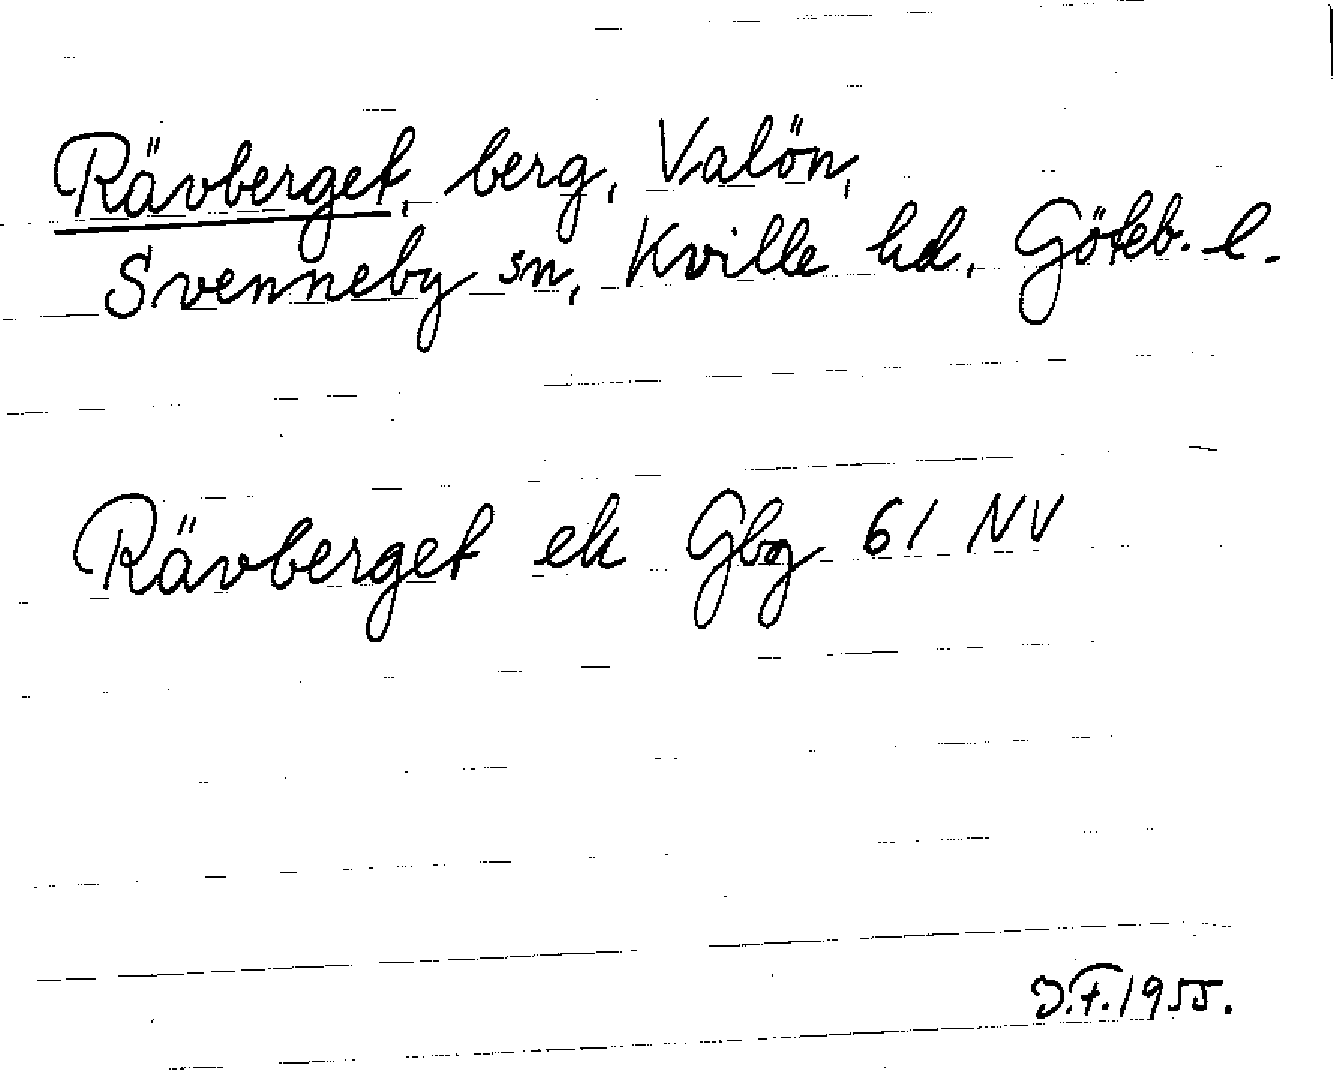 Rävberget, berg, Valön,
Svenneby sn, Kville hd, Göteb. l.
Rävberget ek Gbg 61 NV
J.F.1955.